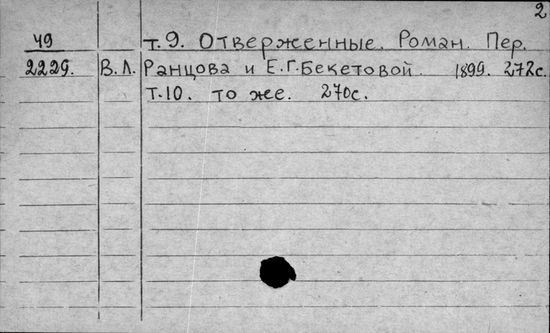 2
49 т.9. Отверженные. Роман. Пер.
2229. В.Л. Ранцова и Е.Г.Бекетовой. 1899. 272с.
т.10. то же. 270с.